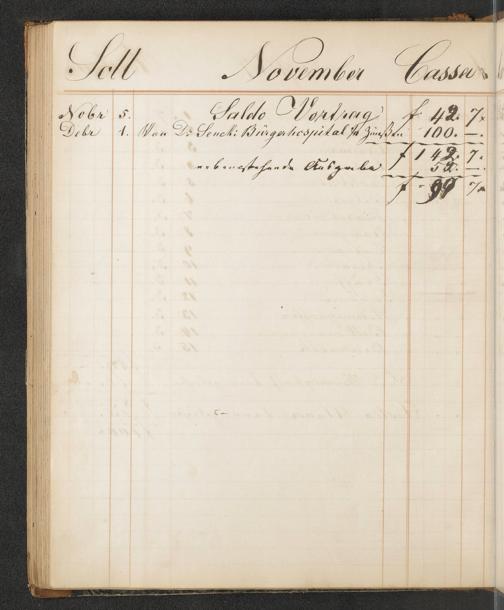 Soll November Cassa
Nobr 5. Saldo Vortrag f 42. 7.
Debr 1. Von Dr Senck. Bürgerhospital für Zinsen 100. —.
f 142. 7.
nebenstehende Ausgabe 52. —.
f 7.